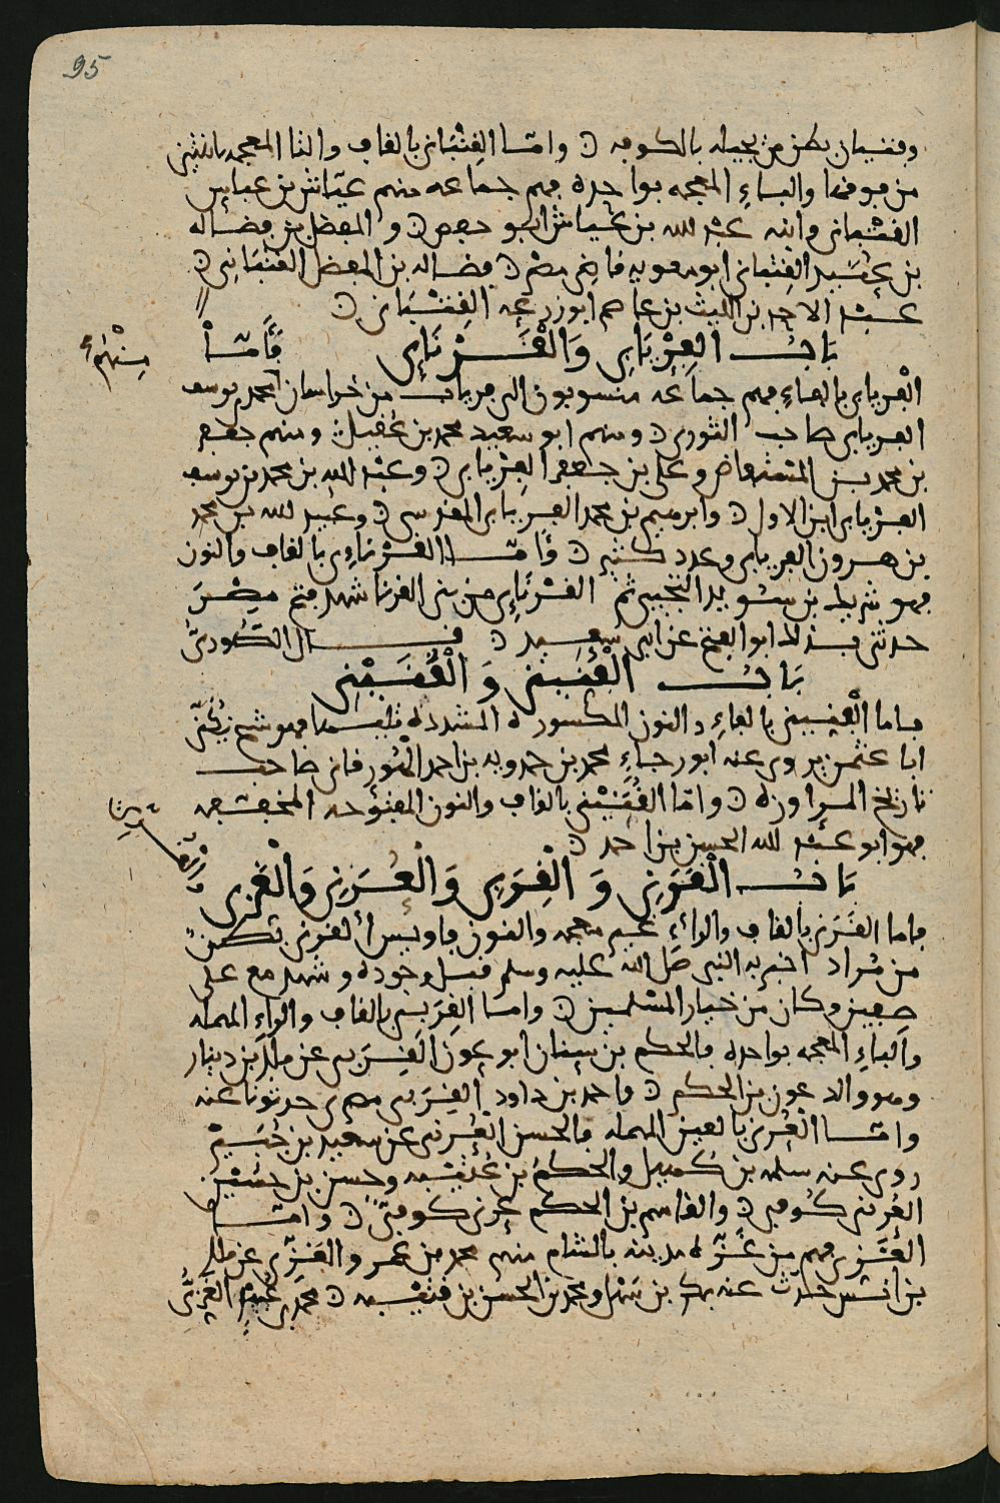 95
وفتيان بطن من بجيله بالكوفه ۞ وامّا القِتْبَاني بالقاف والتا المعجمه باثنتين
من فوقها والباءِ المعجمه بواحده فهم جماعه منهم عيّاش بن عباس
القتباني وابنه عبد الله بن عياش ابو حفص ۞ والمفضل بن فضاله
بن عبيد القِتباني ابو معويه قاضي مصر ۞ فضاله بن المفضل القتبَاني ۞
عبد الاحد بن الليث بن عاصم ابو زرعه القِتْبَاني ۞
بَابُ الفِرْيَابِي وَالْقَرْنَاءِي فَأَمّاْ
مِنْهُم
الْفريابي بالفاءِ فهم جماعه منسوبون الى فرياب من خراسان محمد بن يوسف
الفريابي صاحب الثوري ۞ ومنهم ابو سعيد محمد بن عقيل ۞ ومنهم جعفر
بن محمد بن المستفاض وعلي بن جعفر الفِرْيابي ۞ وعبْد الله بن محمد بن يوسف
الفرْيابي ابن الاول ۞ وابرهيم بن محمد الفريابي المقدسي ۞ وعبيد الله بن محمد
بن هرون الفريابي وعدد كثير ۞ وَأمّا القَرْنَاءِي بالقاف والنون
فهو شريك بن سُويد التجيبي ثم القَرْنَاءِي من بني القرنا شهد فتح مِصْرَ
حدثني بذلك ابو الفتح عن ابي سعيد ۞ قال الصُّوري
بَابُ الْقُنَيْني وَ الْقُنَيْنِي
فاما الْفَنِيني بالفاءِ والنون المكسوره المشدده فهو شيخ يُكنّى
ابا عثمن يروي عنه ابو رجاءٍ محمد بن حمدويه بن احمد الْهُورقاني صاحب
تاريخ المراوزه ۞ وامّا القُنَيْني بالقاف والنون المفتوحه المخففه
فهو ابو عبد الله الحسين بن احمد ۞
بَابُ الْقَرَنِي وَ الْقِرَبي وَالْعُرَنِي وَالْغَزِّي
فاما القَرَني بالقاف والراءِ غير معجمه والنون فاويس القرني بطن
من مُراد اخبر به النبي صَلى الله عليه وسلم قبل وجوده وشهد مع علي
صفين وكان من خيار المسْلمين ۞ وامّا القِرَبي بالقاف والراءِ المهمله
والباءِ المعجمه بواحده فالحكم بن سِنان ابو عون القِرَبي عن ملك بن دينار
وهو والد عون بن الحكم ۞ واحمد بن داود القِرَبي مصري حدثونا عنه
وامّا العُرني بالعين المهمله فالحسن العُرني عن سعيد بن جُبَيْر
روى عنه سلمه بن كهيل والحكم بن عتيبه وحسن بن حسين
العُرني كُوفي ۞ والقاسم بن الحكم عُرني كوفيّ ۞ وامّا
الغَزي فهم من غَزّه مدينه بالشام منهم محمد بن عمرو الغَزّي عن ملك
بن انس حدث عنه بكر بن سَهل ومحمد بن الحسن بن قتيبه ۞ محمد بن عُبيْد الغَزّي